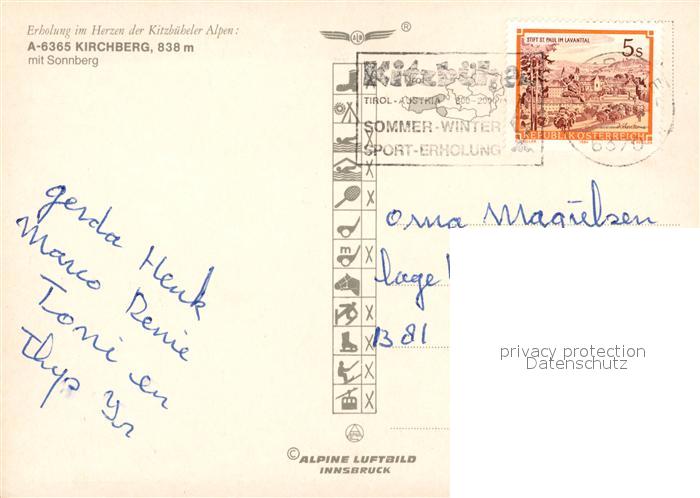 Erholung im Herzen der Kitzbüheler Alpen:
A-6365 KIRCHBERG, 838 m
mit Sonnberg
STIFT ST. PAUL IM LAVANTTAL
5s
REPUBLIK ÖSTERREICH
Kitzbühel
TIROL-AUSTRIA 800-2000 m
SOMMER-WINTER
SPORT-ERHOLUNG
6370
gerda Henk
Marco Renie
Toni en
Thys
oma Magielsen
lage
B 81
privacy protection
Datenschutz
© ALPINE LUFTBILD
INNSBRUCK